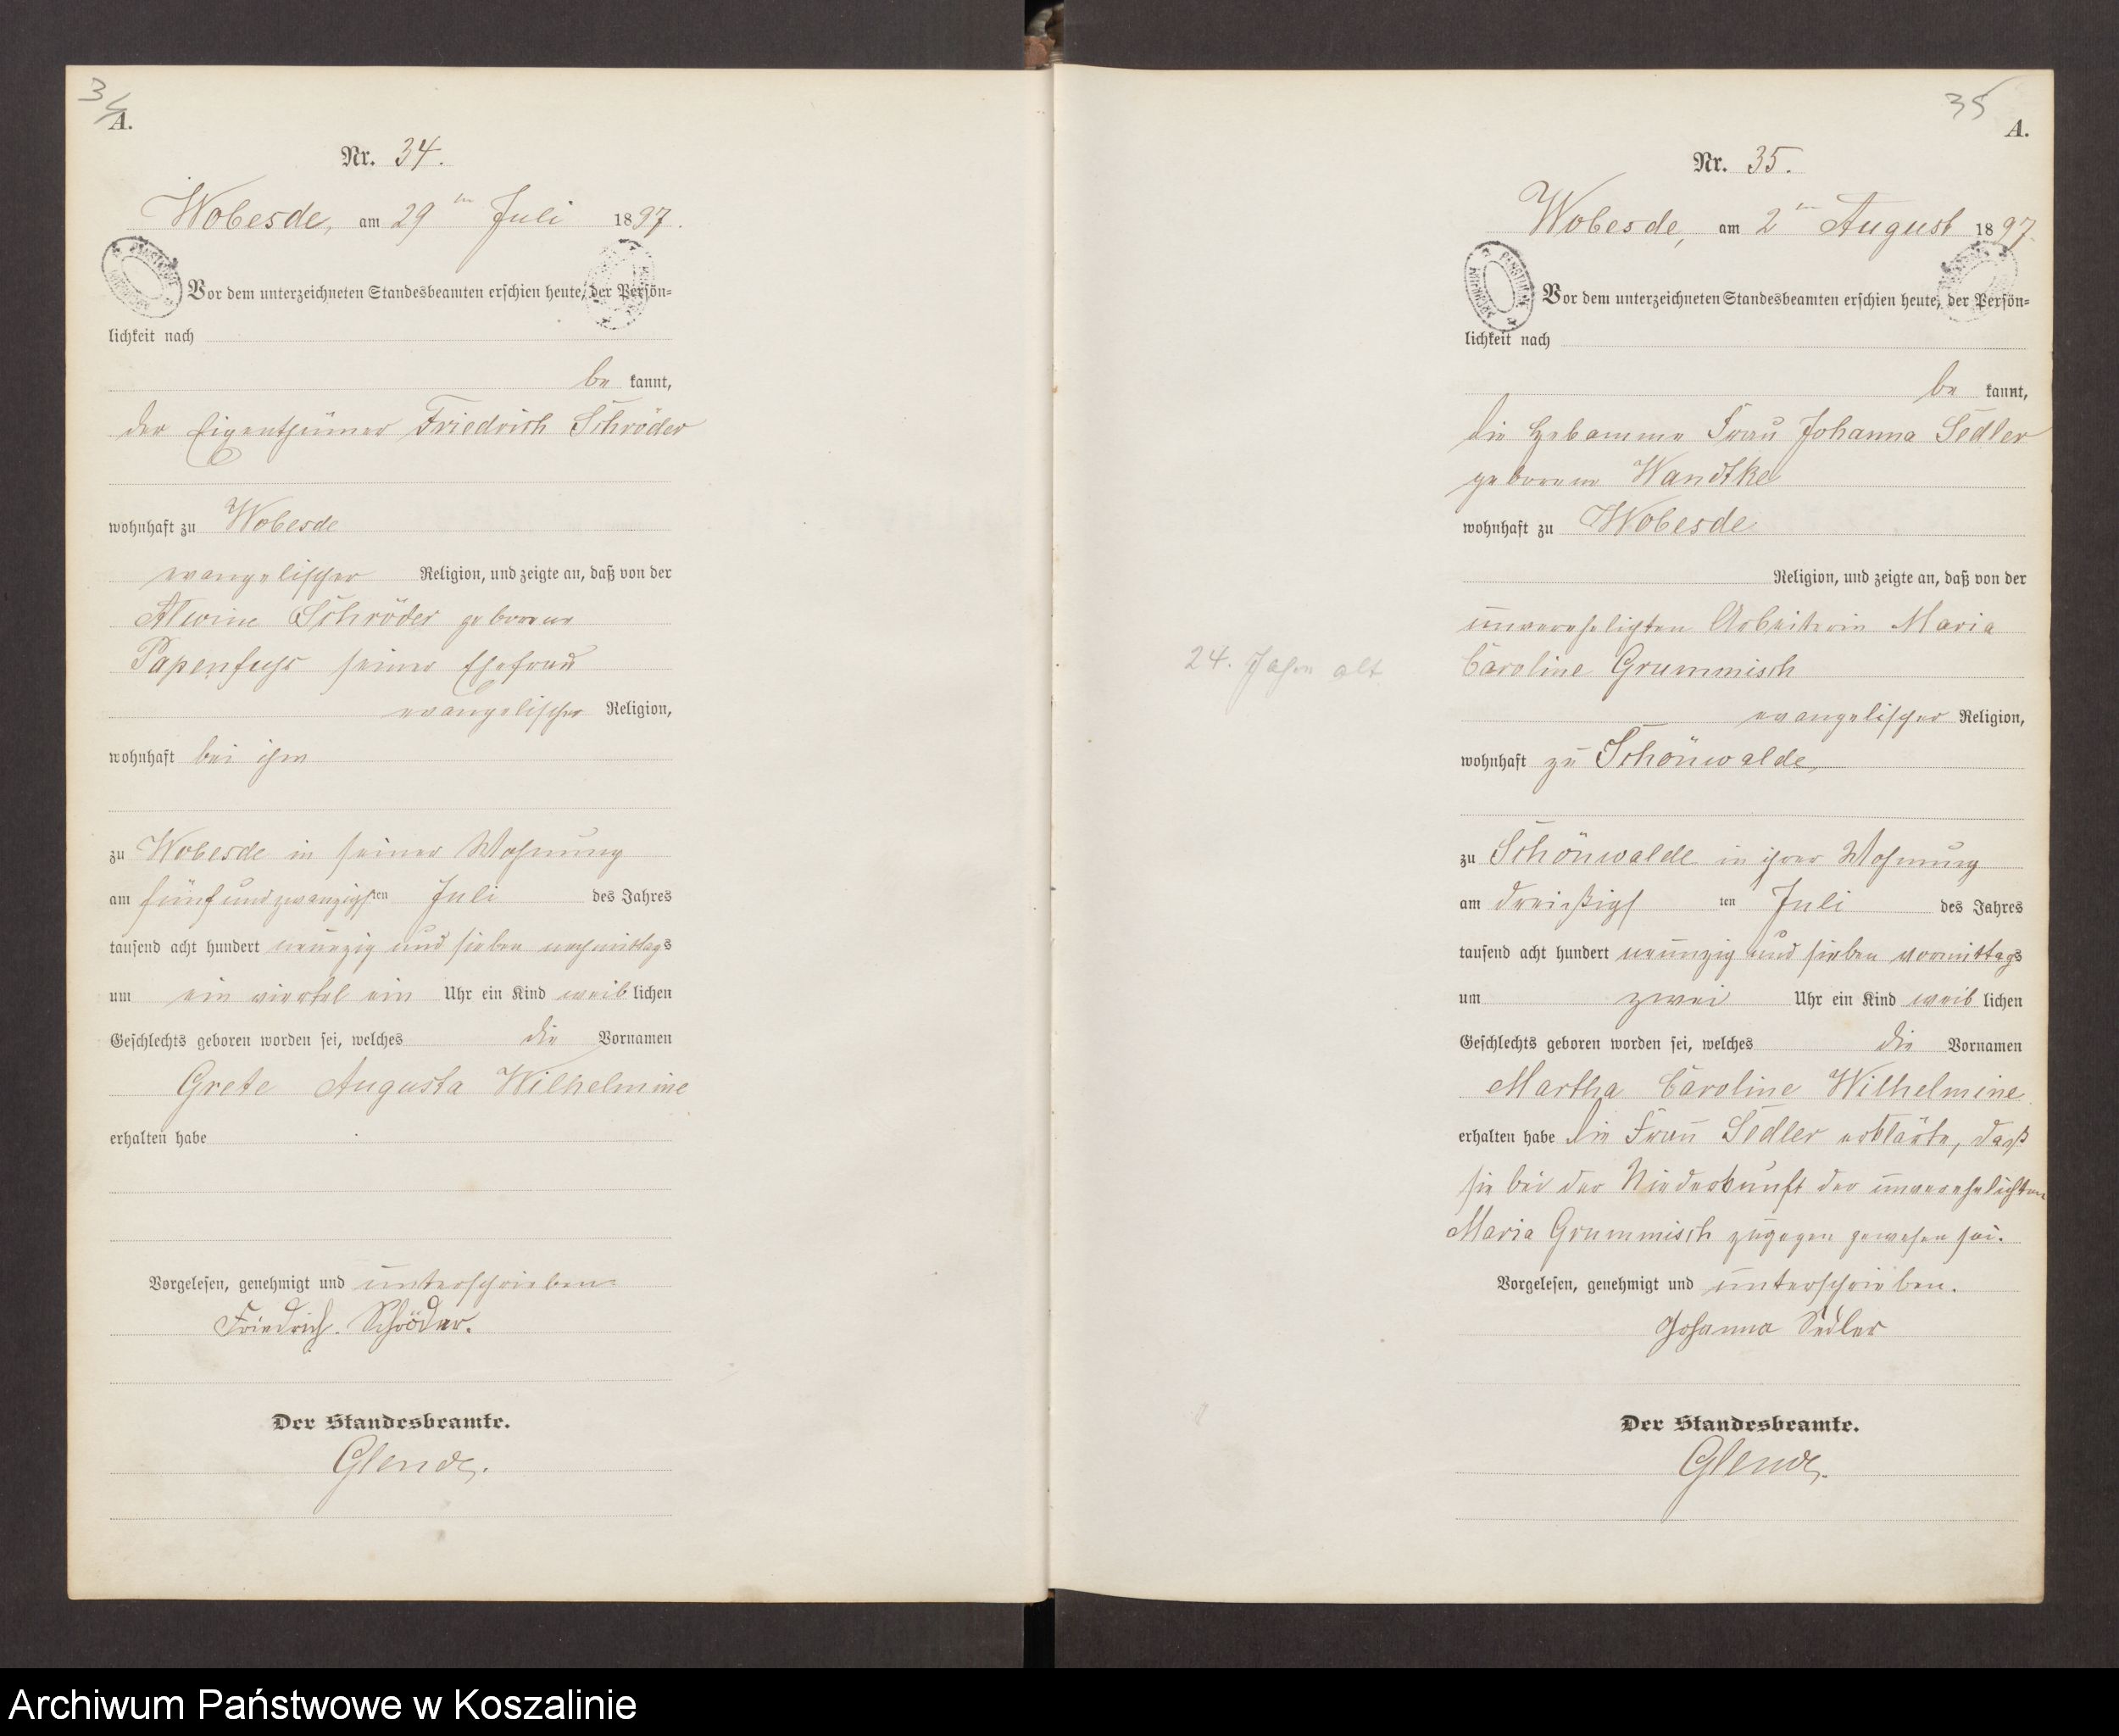 34
A.
Nr. 34.
Wobesde, am 29ten Juli 1897.
Vor dem unterzeichneten Standesbeamten erschien heute, der Persön-
lichkeit nach
be kannt,
der Eigenthümer Friedrich Schröder
wohnhaft zu Wobesde
evangelischer Religion, und zeigte an, daß von der
Alwine Schröder geborene
Papenfuss seiner Ehefrau
evangelischer Religion,
wohnhaft bei ihm
zu Wobesde in seiner Wohnung
am fünfundzwanzigsten Juli des Jahres
tausend acht hundert neunzig und sieben nachmittags
um ein viertel ein Uhr ein Kind weiblichen
Geschlechts geboren worden sei, welches die Vornamen
Grete Augusta Wilhelmine
erhalten habe
Vorgelesen, genehmigt und unterschrieben
Friedrich Schröder.
Der Standesbeamte.
Glende.
35
A.
Nr. 35.
Wobesde, am 2ten August 1897.
Vor dem unterzeichneten Standesbeamten erschien heute, der Persön-
lichkeit nach
be kannt,
die Hebamme Frau Johanna Sedler
geborene Wandtke
wohnhaft zu Wobesde
Religion, und zeigte an, daß von der
unverehelichten Arbeiterin Maria
24. Jahre alt
Caroline Grummisch
evangelischer Religion,
wohnhaft zu Schönwalde,
zu Schönwalde in ihrer Wohnung
am dreißigsten Juli des Jahres
tausend acht hundert neunzig und sieben vormittags
um zwei Uhr ein Kind weiblichen
Geschlechts geboren worden sei, welches die Vornamen
Martha Caroline Wilhelmine
erhalten habe Die Frau Sedler erklärte, daß
sie bei der Niederkunft der unverehelichten
Maria Grummisch zugegen gewesen sei.
Vorgelesen, genehmigt und unterschrieben.
Johanna Sedler
Der Standesbeamte.
Glende.
Archiwum Państwowe w Koszalinie